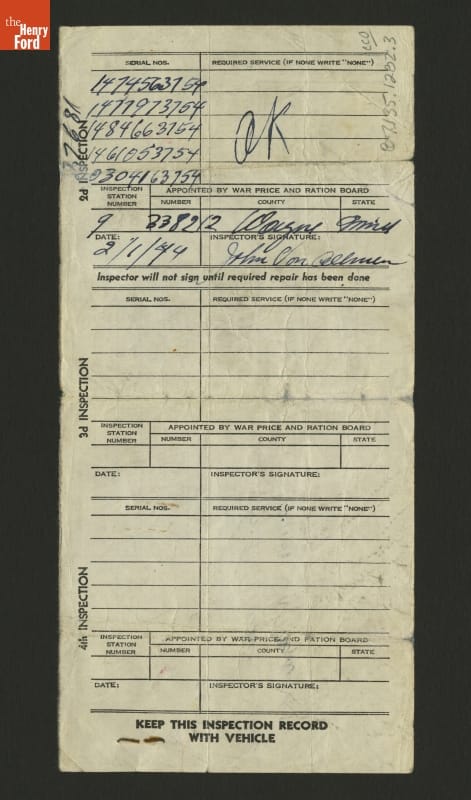 the
Henry
Ford
87.135.1252.3
37681
2d INSPECTION
SERIAL NOS.
REQUIRED SERVICE (IF NONE WRITE "NONE")
1474563754
1477973754
1484663754
1461053754
0304163754
OK
INSPECTION STATION NUMBER
APPOINTED BY WAR PRICE AND RATION BOARD
NUMBER COUNTY STATE
9 238212 Wayne Mich
DATE: INSPECTOR'S SIGNATURE:
2/1/44 John Von
Inspector will not sign until required repair has been done
3d INSPECTION
SERIAL NOS.
REQUIRED SERVICE (IF NONE WRITE "NONE")
INSPECTION STATION NUMBER
APPOINTED BY WAR PRICE AND RATION BOARD
NUMBER COUNTY STATE
DATE: INSPECTOR'S SIGNATURE:
4th INSPECTION
SERIAL NOS.
REQUIRED SERVICE (IF NONE WRITE "NONE")
INSPECTION STATION NUMBER
APPOINTED BY WAR PRICE AND RATION BOARD
NUMBER COUNTY STATE
DATE: INSPECTOR'S SIGNATURE:
KEEP THIS INSPECTION RECORD
WITH VEHICLE